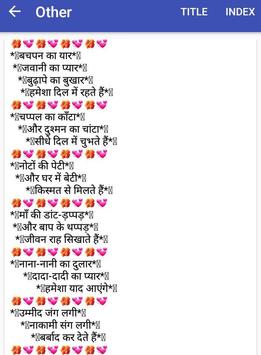 Other TITLE INDEX
*बचपन का यार*
*जवानी का प्यार*
*बुढ़ापे का बुखार*
*हमेशा दिल में रहते हैं*
*चप्पल का काँटा*
*और दुश्मन का चांटा*
*सीधे दिल में चुभते हैं*
*नोटों की पेटी*
*और घर में बेटी*
*किस्मत से मिलते हैं*
*माँ की डांट-ड़प्पड़*
*और बाप के थप्पड़*
*जीवन राह सिखाते हैं*
*नाना-नानी का दुलार*
*दादा-दादी का प्यार*
*हमेशा याद आएंगे*
*उम्मीद जंग लगी*
*नाकामी संग लगी*
*बर्बाद कर देते हैं*